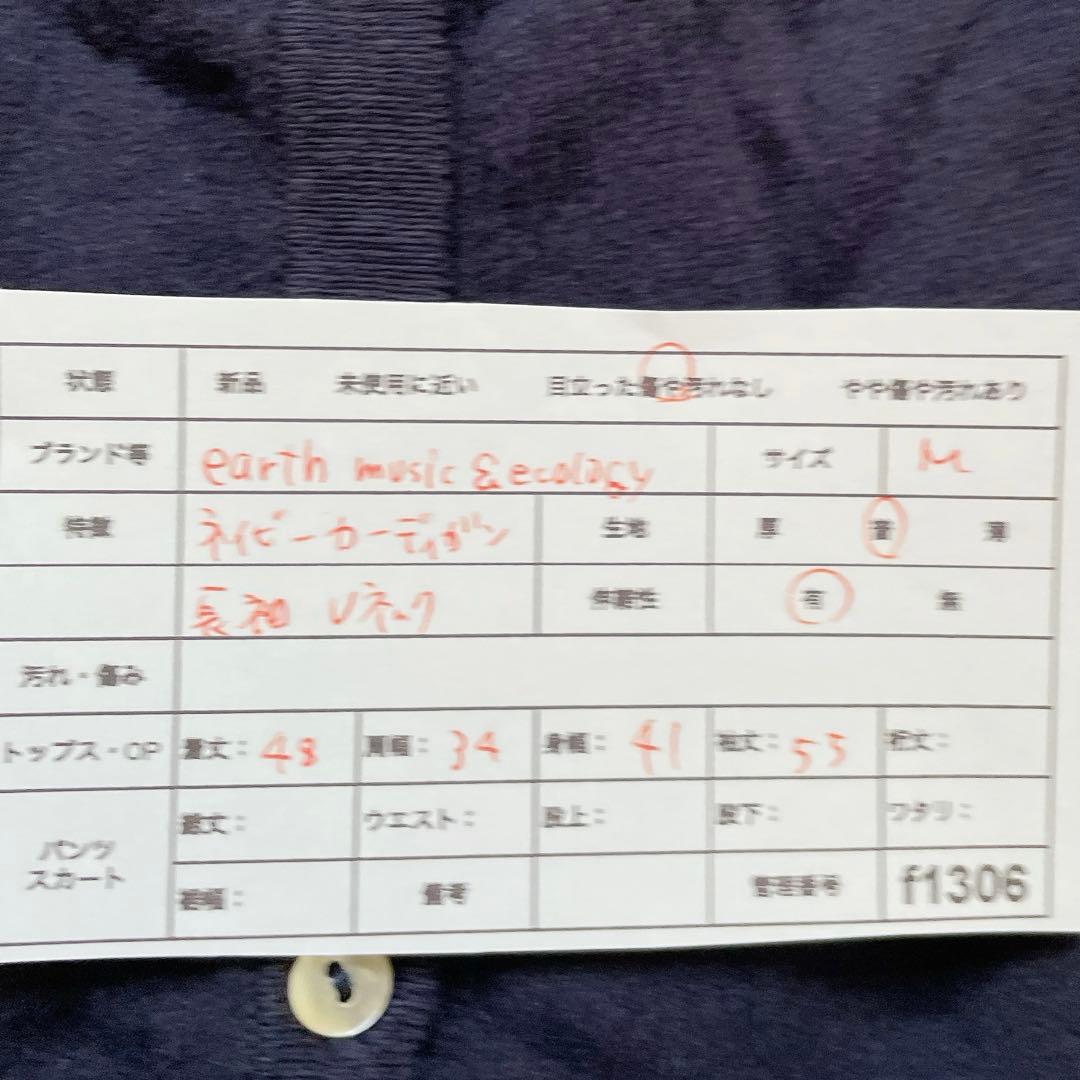 状態 新品 未使用に近い 目立った傷や汚れなし やや傷や汚れあり
ブランド等 earth music & ecology サイズ M
特徴 ネイビーカーディガン 生地 厚 普 薄
長袖 Vネック 伸縮性 有 無
汚れ・傷み
トップス・OP 着丈: 48 肩幅: 34 身幅: 41 袖丈: 53 裄丈:
パンツ スカート 総丈: ウエスト: 股上: 股下: ワタリ:
裾幅: 備考 管理番号 f1306